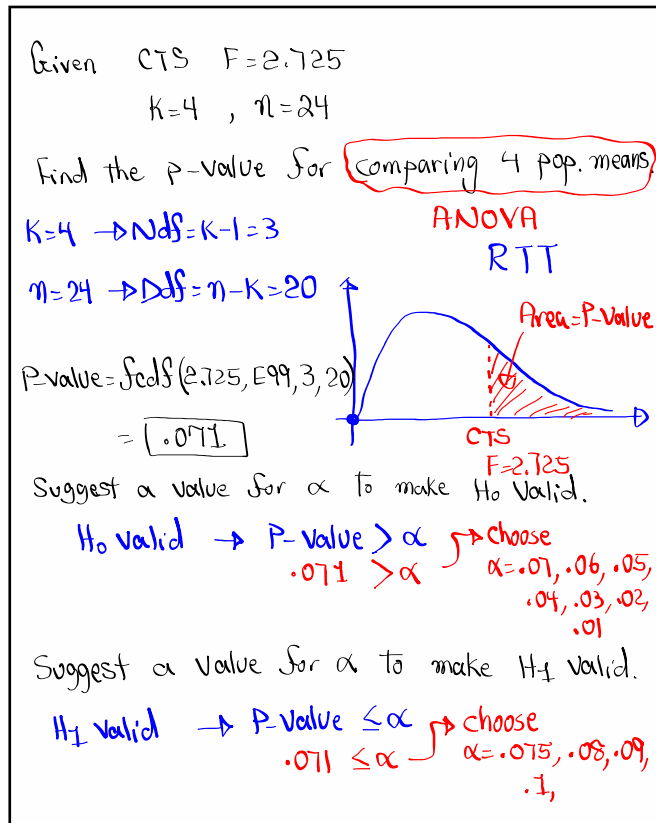 Given CTS F=2.725
K=4 , n=24
Find the p-value for comparing 4 pop. means.
K=4 → Ndf=K-1=3
ANOVA
RTT
n=24 → Ddf=n-K=20
Area=P-Value
P-value=fcdf(2.725,E99,3,20)
= .071
CTS
F=2.725
Suggest a value for α to make H0 Valid.
H0 Valid → P-Value > α
.071 > α
choose
α=.07, .06, .05,
.04, .03, .02,
.01
Suggest a Value for α to make H1 Valid.
H1 Valid → P-Value ≤ α
.071 ≤ α
choose
α=.075, .08, .09,
.1,